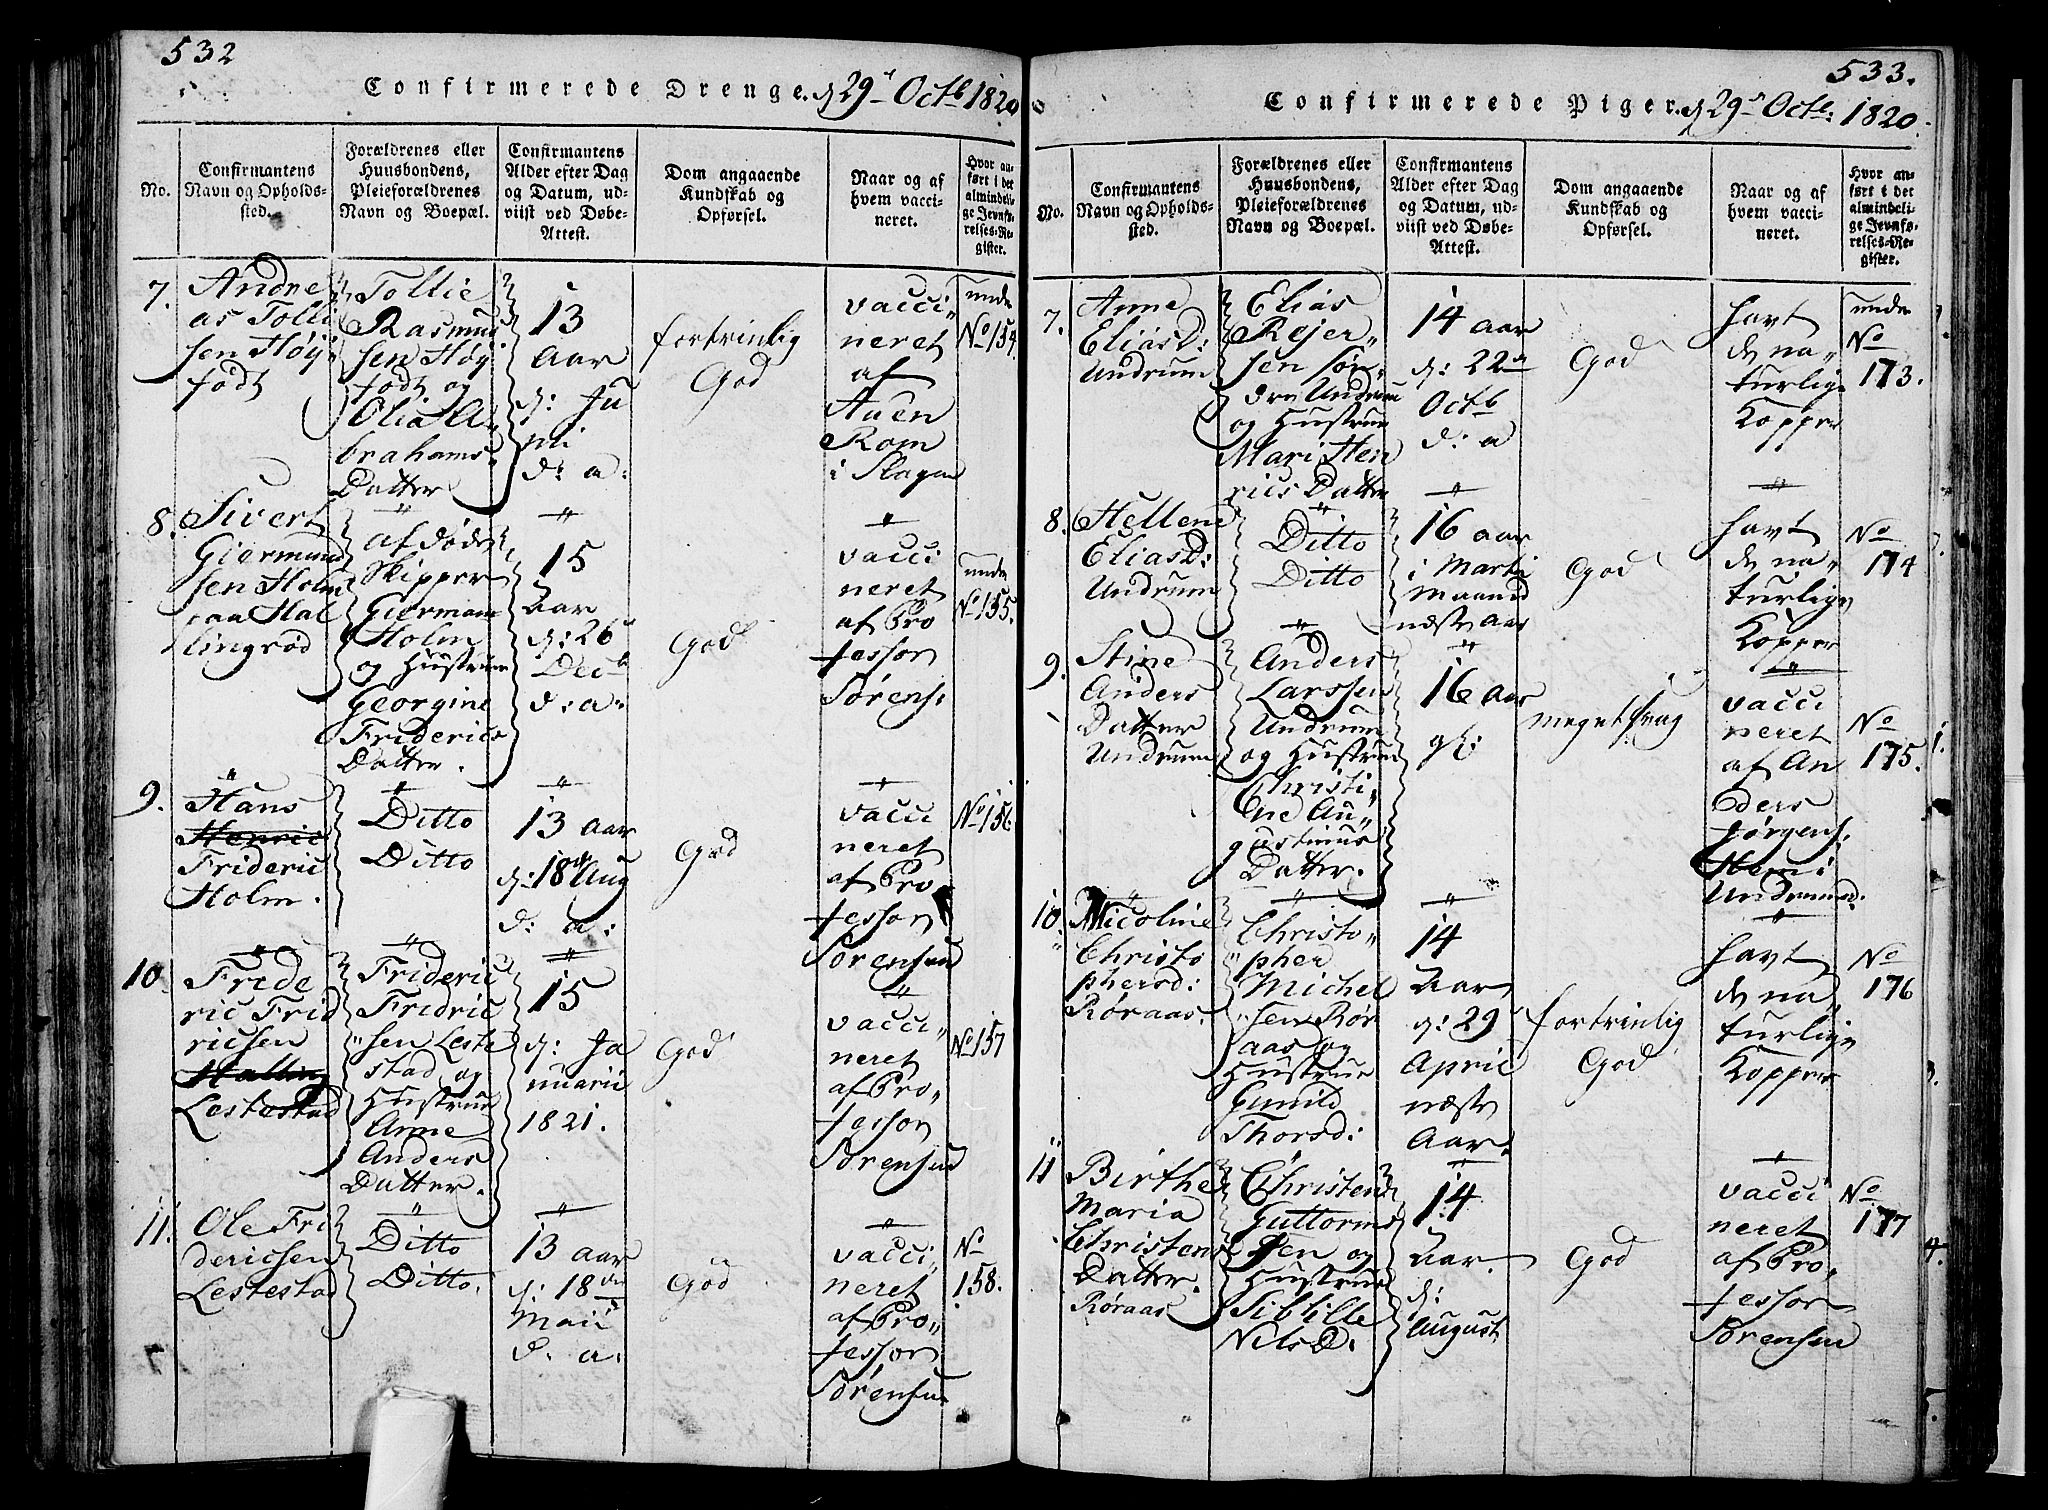 532
Confirmerede Drenge. d 29 Octb 1820
No.
Confirmantens
Navn og Opholds-
sted.
Forældrenes eller
Huusbondens,
Pleieforældrenes
Navn og Boepæl.
Confirmantens
Alder efter Dag
og Datum, ud-
viist ved Døbe-
Attest.
Dom angaaende
Kundskab og
Opførsel.
Naar og af
hvem vacci-
neret.
Hvor an-
ført i det
almindeli-
ge Jevnfø-
relses-Re-
gister.
7.
Andre
as Tolli
sen Høy
født
Tollie
Rasmus
sen Høy
født og
Olia A
brahams
Datter
13
Aar
d: Ju
ni
d: a:
fortrinlig
God
vacci
neret
af
Auen
Rom
i Slagen
unde
No 154
8.
Sivert
Giermund
sen Holm
paa Hal
lingrød
af døde
Skipper
Giermund
Holm
og Hustrue
Georgine
Friderics
Datter.
15
Aar
d: 26
Decb
d: a:
God
vacci
neret
af Pro
fessor
Sørens:
unde
No 155.
9.
Hans
Henric
Frideric
Holm.
Ditto
Ditto
13 Aar
d: 18 Aug
d: a:
God
vacci
neret
af Pro
fessor
Sørensen
No 156
10
Fride
ric Frid
ricsen
Halling
Lestestad
Frideric
Fridric
sen Leste
stad og
Hustrue
Anne
Anders
Datter.
15
d: Ja
nuarii
1821.
God
vacci
neret
af Pro
fessor
Sørensen
No 157
11.
Ole Fri
dericsen
Lestestad
Ditto
Ditto.
13 Aar
d: 18
Maii
d: a:
God
vacci
neret
af Pro
fessor
Sørensen
No
158.
533.
Confirmerede Piger. d 29 Octb: 1820.
No.
Confirmantens
Navn og Opholds-
sted.
Forældrenes eller
Huusbondens,
Pleieforældrenes
Navn og Boepæl.
Confirmantens
Alder efter Dag
og Datum, ud-
viist ved Døbe-
Attest.
Dom angaaende
Kundskab og
Opførsel.
Naar og af
hvem vacci-
neret.
Hvor an-
ført i det
almindeli-
ge Jevnfø-
relses-Re-
gister.
7.
Anne
Elias D:
Undrum
Elias
Rejer
sen søn
dre Undrum
og Hustrue
Mari Hen
rics Datter
14 Aar
d: 22
Octb
d: a
God
havt
de na
turlige
Kopper
unde
No
173.
8.
Hellene
Elias D:
Undrum
Ditto
Ditto
16 Aar
i Marti
Maaned
næste Aar
God
havt
de na
turlige
Kopper
No
174
9.
Stine
Anders
Datter
Undrum
Anders
Larssen
Undrum
og Hustrue
Christi
ne Au
gustinus
Datter.
16 Aar
gl:
meget svag
vacci
neret
af An
ders
Jørgens:
Hem i
Undrum
No
175.
10.
Nicoline
Christo
phersd:
Røraas.
Christo
pher
Michel
sen Rør
aas og
Hustrue
Gunild
Thorsd:
14
Aar
d: 29
April
næste
Aar
fortrinlig
God
havt
de na
turlige
Kopper
No
176
11
Birthe
Maria
Christens
Datter.
Røraas
Christen
Guttorms
sen og
Hustrue
Sibbille
Nils D:
14
Aar.
d:
August
God
vacci
neret
af Pro
fessor
Sørensen
No
177